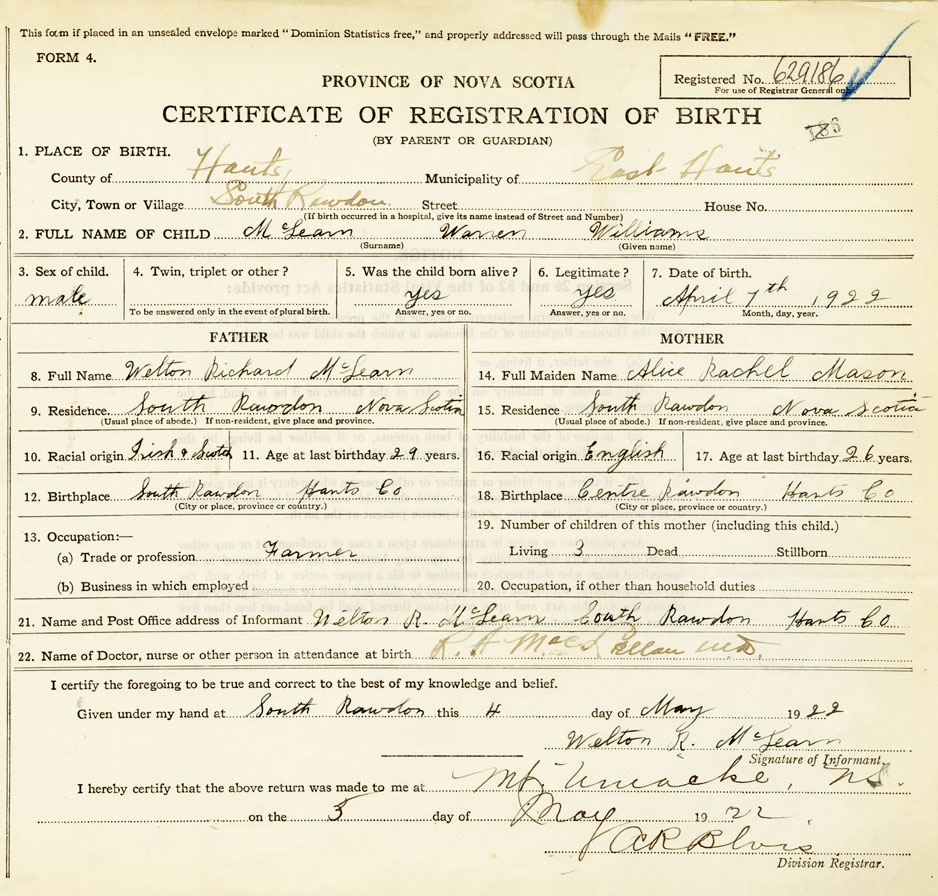 This form if placed in an unsealed envelope marked "Dominion Statistics free," and properly addressed will pass through the Mails "FREE."
FORM 4.
Registered No. 629186
For use of Registrar General only.
PROVINCE OF NOVA SCOTIA
CERTIFICATE OF REGISTRATION OF BIRTH
186
(BY PARENT OR GUARDIAN)
1. PLACE OF BIRTH.
County of Hants, Municipality of East Hants
City, Town or Village South Rawdon Street House No.
(If birth occurred in a hospital, give its name instead of Street and Number)
2. FULL NAME OF CHILD McLearn Warren Williams
(Surname) (Given name)
3. Sex of child. 4. Twin, triplet or other? 5. Was the child born alive? 6. Legitimate? 7. Date of birth.
male yes yes April 7th, 1922
To be answered only in the event of plural birth. Answer, yes or no. Answer, yes or no. Month, day, year.
FATHER MOTHER
8. Full Name Welton Richard McLearn 14. Full Maiden Name Alice Rachel Mason
9. Residence. South Rawdon Nova Scotia 15. Residence South Rawdon Nova Scotia
(Usual place of abode.) If non-resident, give place and province. (Usual place of abode.) If non-resident, give place and province.
10. Racial origin Irish & Scotch 11. Age at last birthday 29 years. 16. Racial origin English 17. Age at last birthday 26 years.
12. Birthplace South Rawdon Hants Co 18. Birthplace Centre Rawdon Hants Co
(City or place, province or country.) (City or place, province or country.)
13. Occupation:— 19. Number of children of this mother (including this child.)
(a) Trade or profession Farmer Living 3 Dead Stillborn
(b) Business in which employed 20. Occupation, if other than household duties
21. Name and Post Office address of Informant Welton R. McLearn South Rawdon Hants Co
22. Name of Doctor, nurse or other person in attendance at birth
I certify the foregoing to be true and correct to the best of my knowledge and belief.
Given under my hand at South Rawdon this 4 day of May 1922
Welton R. McLearn
Signature of Informant.
I hereby certify that the above return was made to me at Mt. Uniacke, N.S.
on the 5 day of May 1922
Division Registrar.